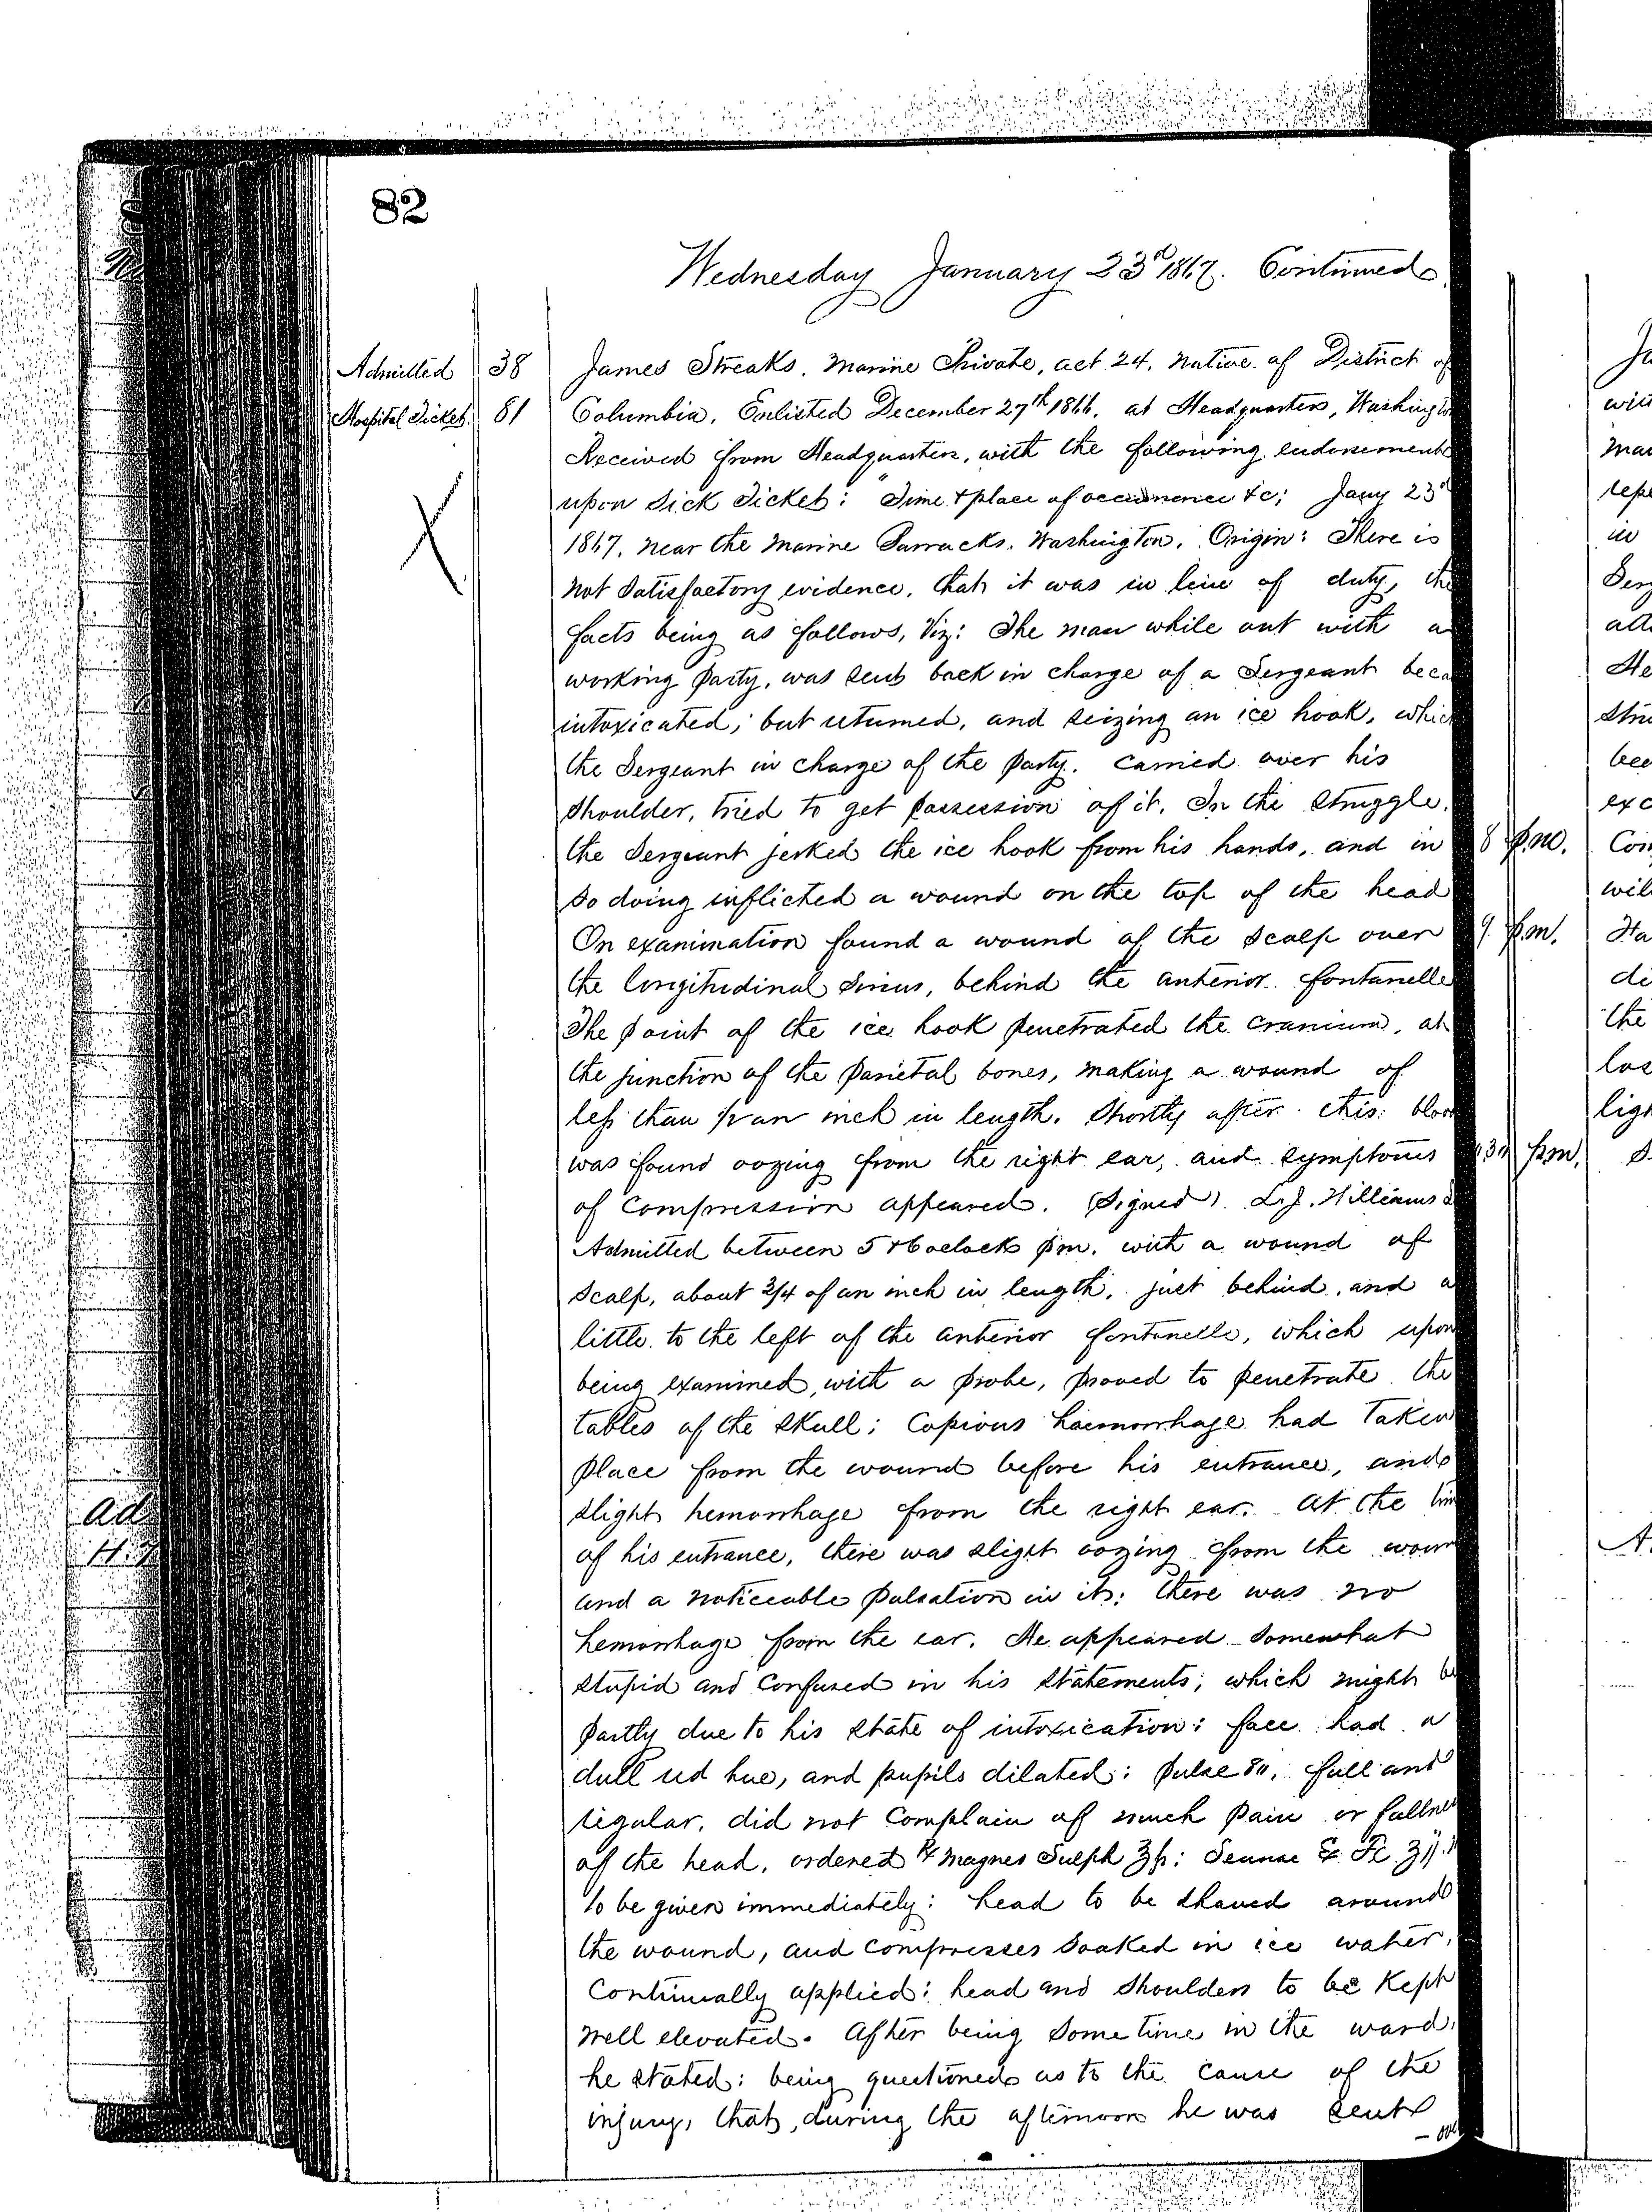 82
Wednesday January 23d 1867. Continued
Admitted 38 James Streaks, Marine Private, aet. 24, native of District of
Hospital Ticket. 81 Columbia, Enlisted December 27th 1866, at Headquarters, Washington
Received from Headquarters, with the following endorsement
upon Sick Ticket: "Time & place of occurrence &c; Jany 23d
1867, near the Marine Barracks, Washington. Origin: There is
not satisfactory evidence, that it was in line of duty, the
facts being as follows, Viz: The man while out with a
working party, was sent back in charge of a Sergeant beca
intoxicated; but returned, and seizing an ice hook, which
the Sergeant in charge of the party, carried over his
shoulder, tried to get possession of it. In the struggle,
the Sergeant jerked the ice hook from his hands, and in
so doing inflicted a wound on the top of the head
On examination found a wound of the scalp over
the longitudinal sinus, behind the anterior fontanelle
The point of the ice hook penetrated the cranium, at
the junction of the parietal bones, making a wound of
less than 1/2 an inch in length. Shortly after this: blood
was found oozing from the right ear, and symptoms
of compression appeared. (Signed). L.J. Williams
Admitted between 5 & 6 oclock pm. with a wound of
scalp, about 3/4 of an inch in length, just behind, and a
little to the left of the anterior fontanelle, which upon
being examined, with a probe, proved to penetrate the
tables of the skull: Copious haemorrhage had taken
place from the wound before his entrance, and
slight hemorrhage from the right ear. At the tim
of his entrance, there was slight oozing from the woun
and a noticeable pulsation in it: there was no
hemorrhage from the ear. He appeared somewhat
stupid and confused in his statements; which might be
partly due to his state of intoxication: face had a
dull red hue, and pupils dilated: pulse 80, full and
regular, did not complain of much pain or fullness
of the head, ordered ℞ Magnes Sulph ℥ß: Sennae
to be given immediately: head to be shaved around
the wound, and compresses soaked in ice water,
continually applied: head and shoulders to be kept
well elevated. After being some time in the ward,
he stated: being questioned as to the cause of the
injury, that, during the afternoon he was sent
8 p.m.
9 p.m.
p.m.